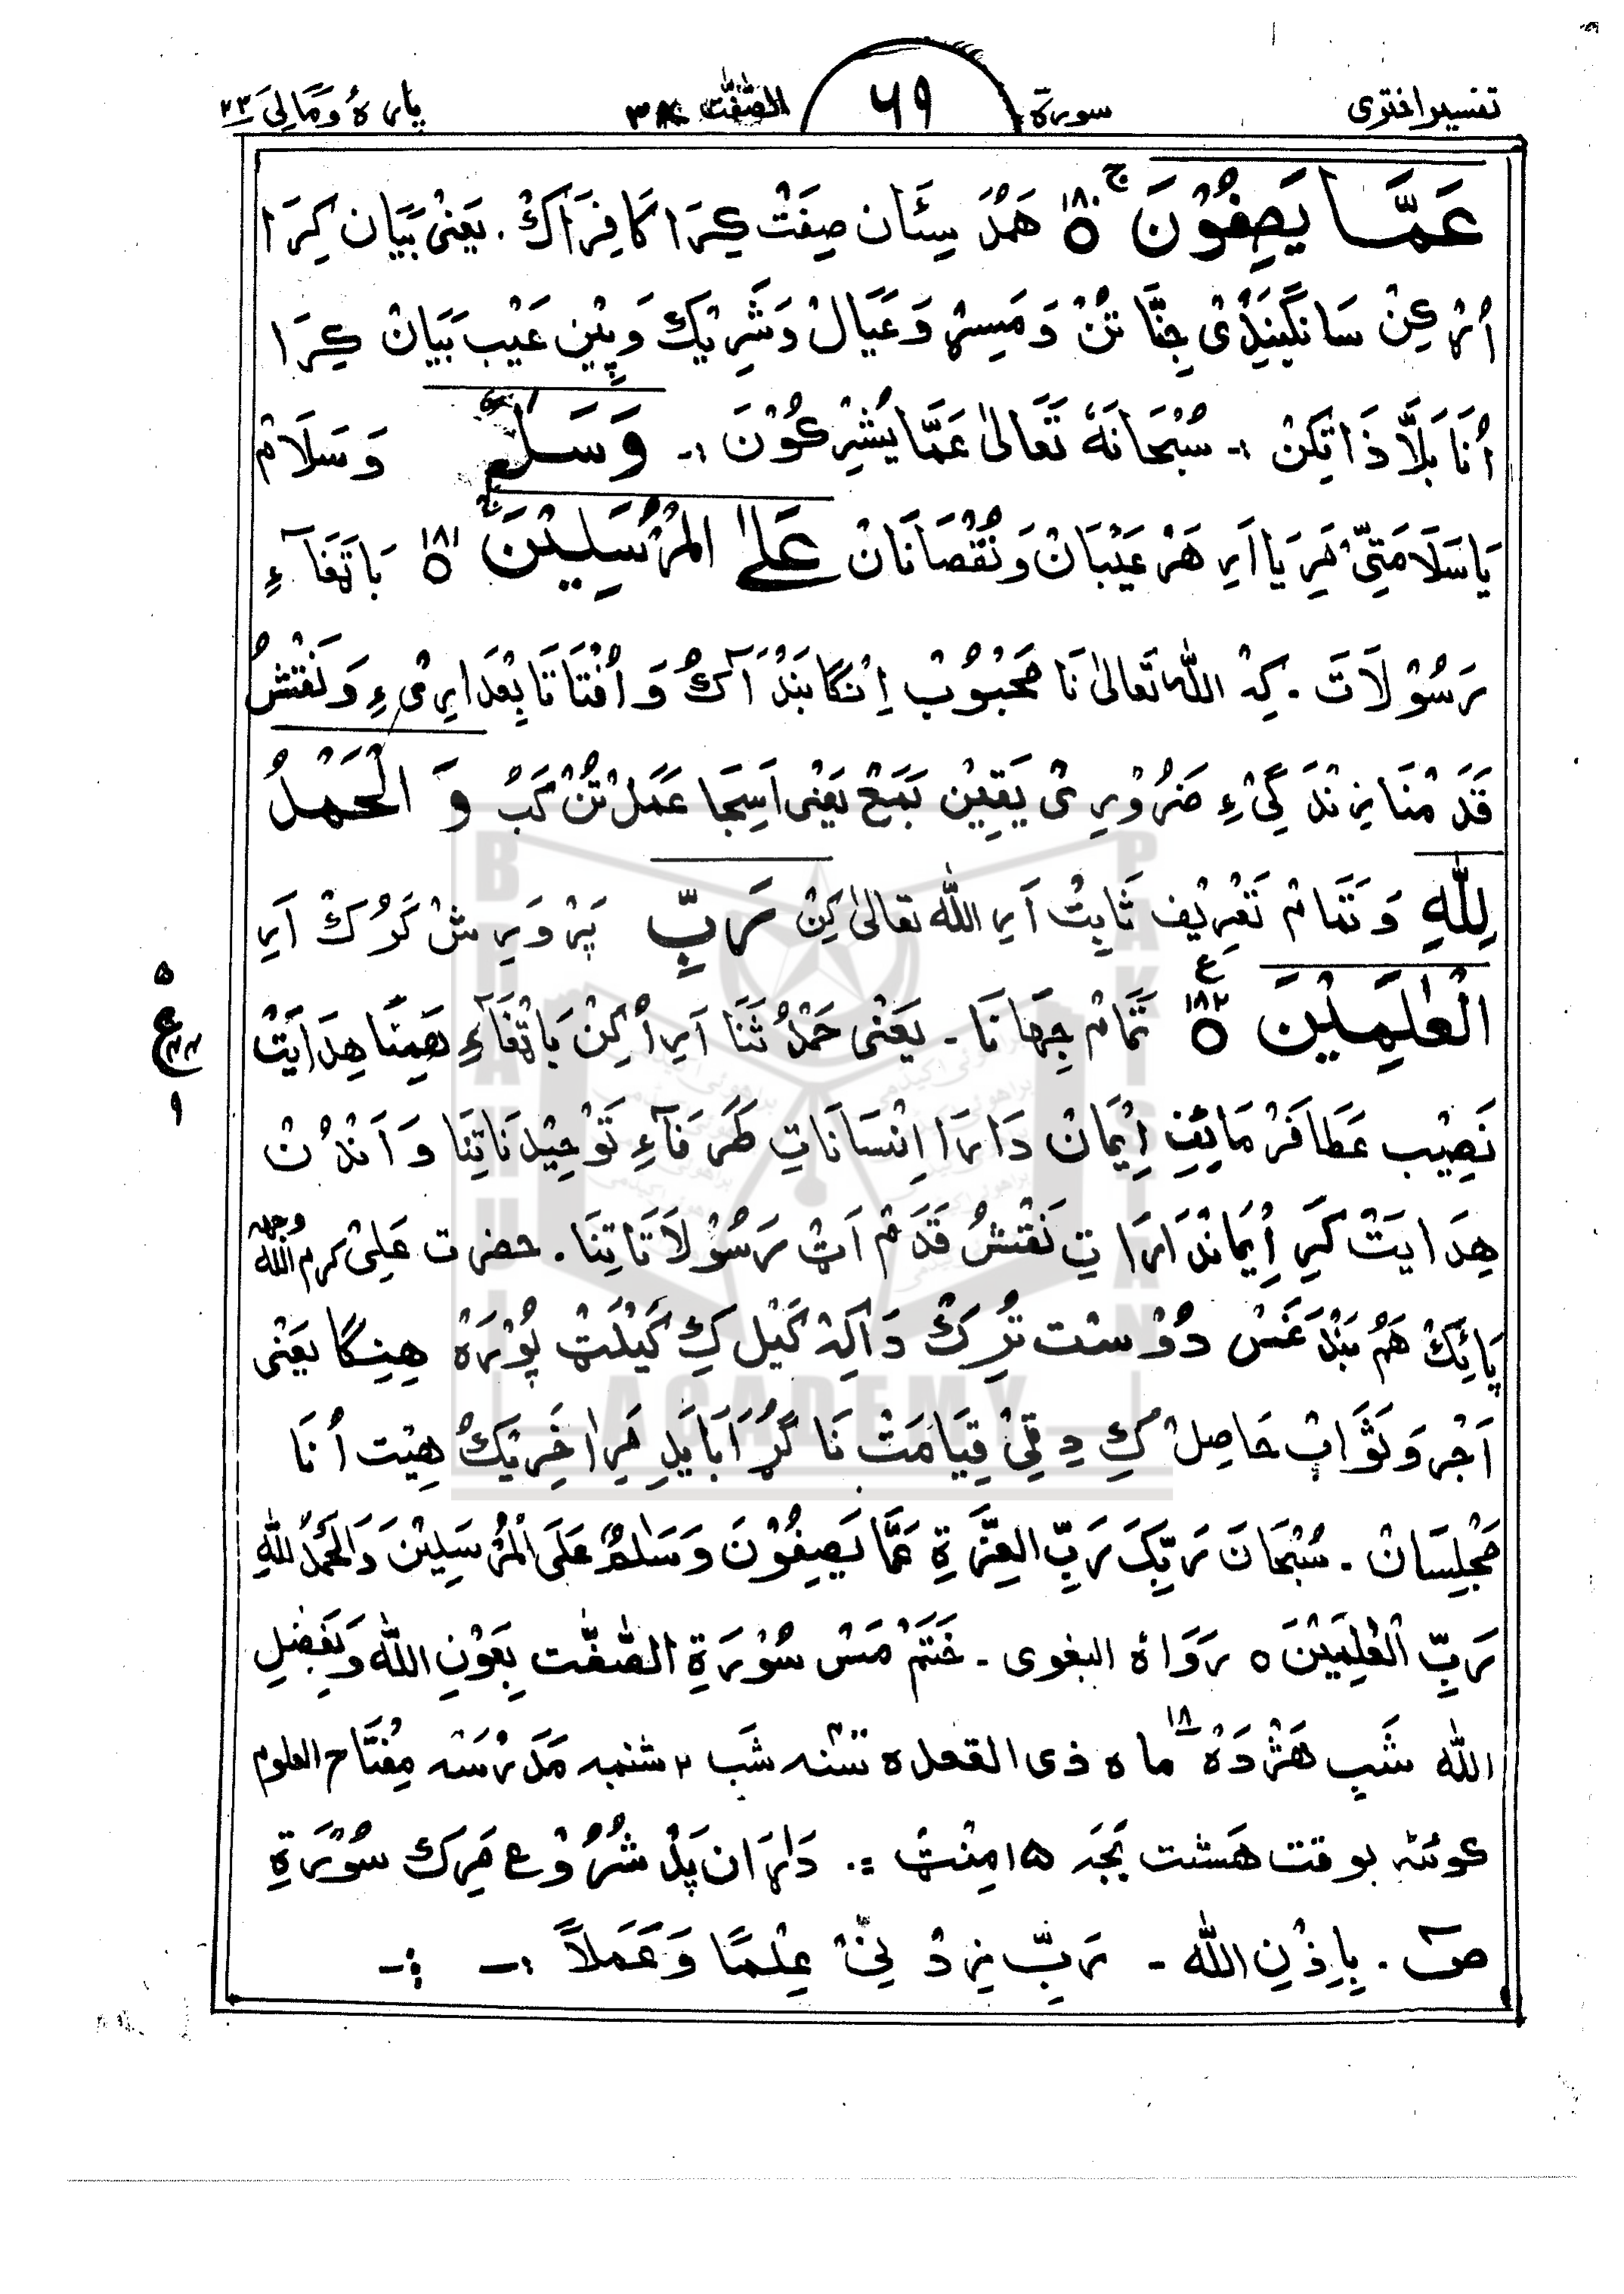 تفسیر افتری سورة ۶۹ الصّٰفّٰت ۳۸ پارہ وَمَالِیَ ۲۳
عَمَّا یَصِفُوْنَ ۱۸۰ هَمُدُ سِئَان صِفَتْ کِرَا کَافِرَاکْ۔ یَعْنِیْ بَیَان کِرَا
اُرْ کِنْ سَانْگِیْنَدِیْ جِنَّا تَنْ وَمَسِرْ وَعَیَالْ وَشَرِیْك وَپِیْن عَیْب بَیَانْ کِرَا
اُنَا بَلَّا ذَاتِکِنْ :۔ سُبْحَانَهٗ تَعَالٰی عَمَّا یُشْرِکُوْنَ :۔ وَسَلٰمٌ وَسَلَامْ
یَا سَلَامَتِیّ مَرِیَا اَرِ هَرْعَیْبَانْ وَنُقْصَانَانْ عَلَی الْمُرْسَلِیْنَ ۱۸۱ بَاتَغَآءِ
رَسُوْلَاتَ۔ کِهْ اللّٰه تَعَالٰی نَا مَحْبُوْب اِنْگَا بَنْدَآكُ وَ اُفْتَاتَا بِعْدَارِیْ ءِ وَنَقْشُ
قَدَمْنَا زِنْدَگِیْ ءِ ضَرُوْرِیْ یَقِیْن بَمَعْ یَعْنِی اَسِجَا عَمَلْ تُنْ کَبُ وَ الْحَمْدُ
لِلّٰهِ وَتَمَامْ تَعْرِیْف ثَابِتْ اَرِ اللّٰه تعالٰی کِنْ رَبِّ پَرْوَرِشْ کَرُكْ اَرِ
الْعٰلَمِیْنَ ۱۸۲ تَمَامْ جِهَانَا ۔ یَعْنِی حَمْدُ ثَنَا اَرِ اُرْکِنْ بَاتَغَآءِ هَمِنَا هِدَایَتْ
نَصِیْب عَطَا فَرْمَائِفِ اِیْمَانْ دَارَا اِنْسَانَاتِ طَرَفَآءِ تَوْحِیْدِنَاتِنَا وَ اَنْدُنْ
هِدَایَتْ کَرِ اِیْمَانْدَارَا تِ نَقْشُ قَدَمْ اَٹْ رَسُوْلَاتَاتِنَا۔ حضرت عَلِیْ کرم اللّٰه وجهه
پَائِكْ هَمُ بَنْدَغَسْ دُوْسْت تُرِكْ دَاکِهْ کَیْل کِ کَیْلَٹْ پُوْرَہ هِنِگَا یَعْنِی
اَجْر وَ ثَوَابْ حَاصِلْ کِ دِقِیْ قِیَامَتْ نَا گُڑَا بَایَدِ مَرِا خَرِیْكُ هِیْت اُنَا
مَجْلِسَانْ۔ سُبْحَانَ رَبِّكَ رَبِّ الْعِزَّةِ عَمَّا یَصِفُوْنَ وَسَلٰمٌ عَلَی الْمُرْسَلِیْنَ وَالْحَمْدُ لِلّٰهِ
رَبِّ الْعٰلَمِیْنَ ٥ رَوَاهُ البغوی ۔ خَتَمْ مَسْ سُوْرَةِ الصّٰفّٰت بِعَوْنِ اللّٰه وَبِفَضْلِ
اللّٰه شَبِ هَژْدَهْ ۱۸ ماه ذی القعده شَب ۲ شنبه مَدْرَسَه مِفْتَاح العلوم
کوئٹہ بوقت هَشْت بَجَہ ۱۵ مِنْٹ :۔ دَاڑَان پَدْ شُرُوْع مَرِك سُوْرَةِ
صٓ۔ بِاِذْنِ اللّٰه ۔ رَبِّ زِدْ نِیْ عِلْمًا وَعَمَلًا :۔
۵
ع
۹
BRAHUI
ACADEMY
PAKISTAN